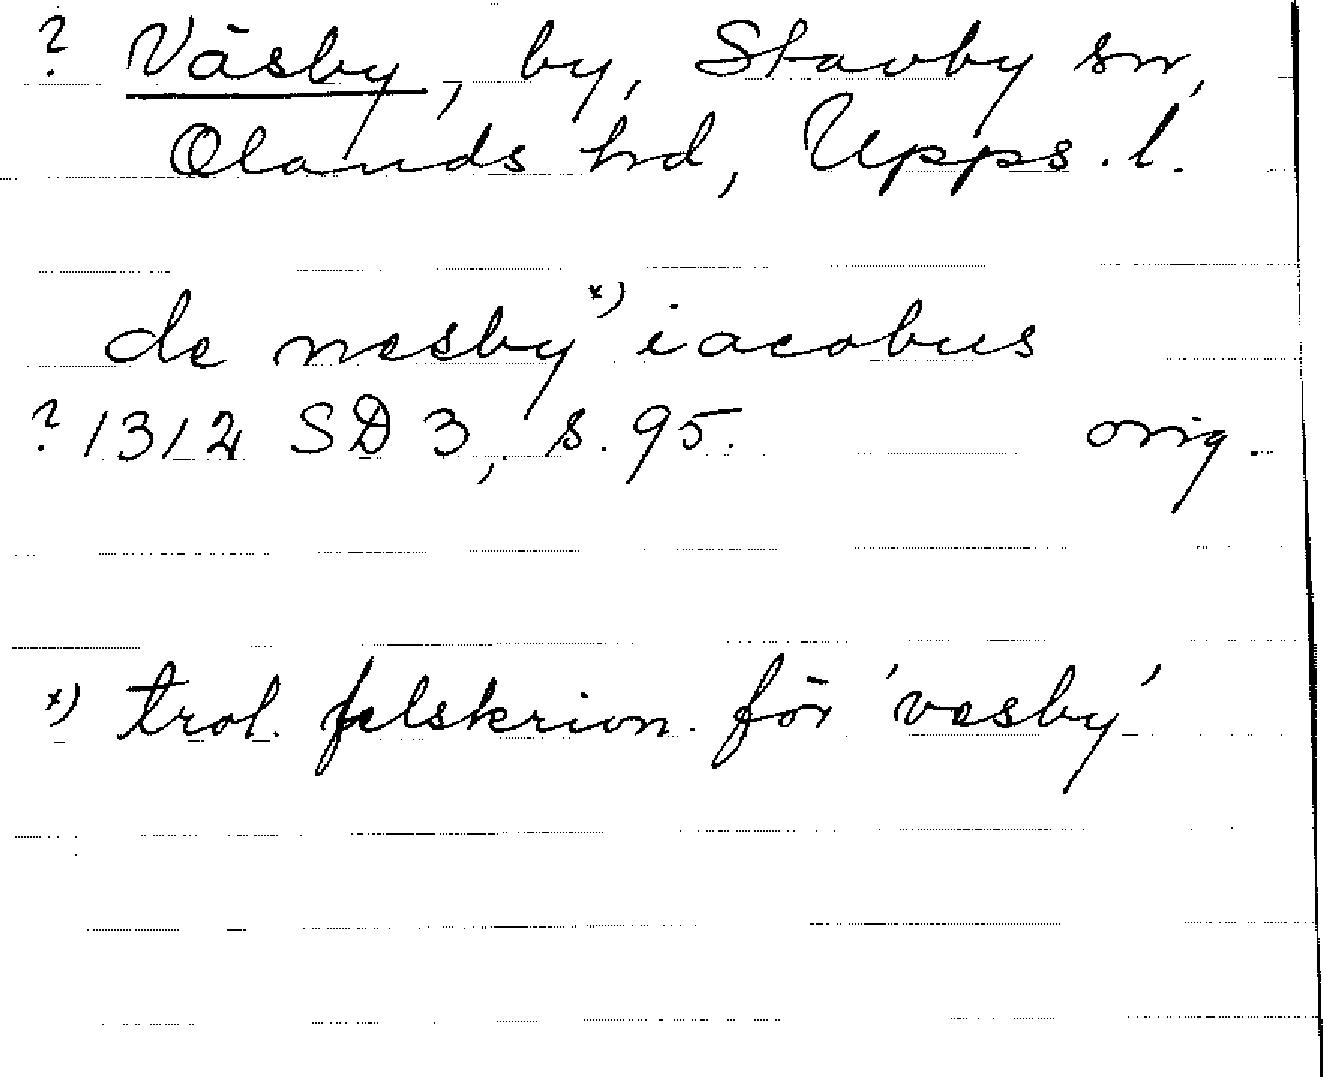 ? Väsby, by, Stavby sn,
Olands hd, Upps. l.
de nesby*) iacobus
? 1312 SD 3, s. 95. orig.
*) trol. felskrivn. för 'vesby'